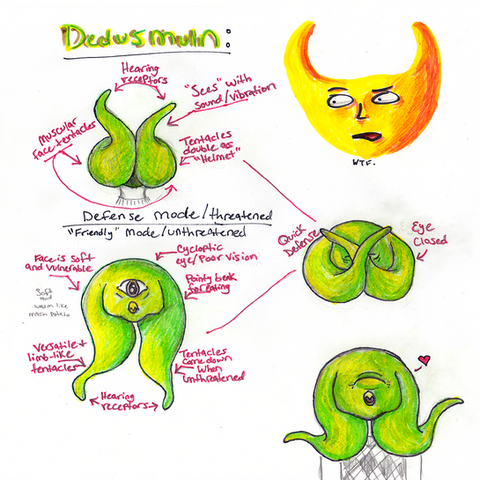 Dedusmuln:
Hearing
receptors
"Sees" with
sound/vibration
Muscular
face tentacles
Tentacles
double as
"Helmet"
WTF.
Defense mode/threatened
"Friendly" mode/unthreatened
Quick
Defense
Eye
Closed
Face is soft
and vulnerable
Cycloptic
eye/Poor vision
Pointy beak
for eating
Soft
and
warm like
mash potato
Versatile +
limb-like
tentacles
Tentacles
come down
when
unthreatened
Hearing
receptors